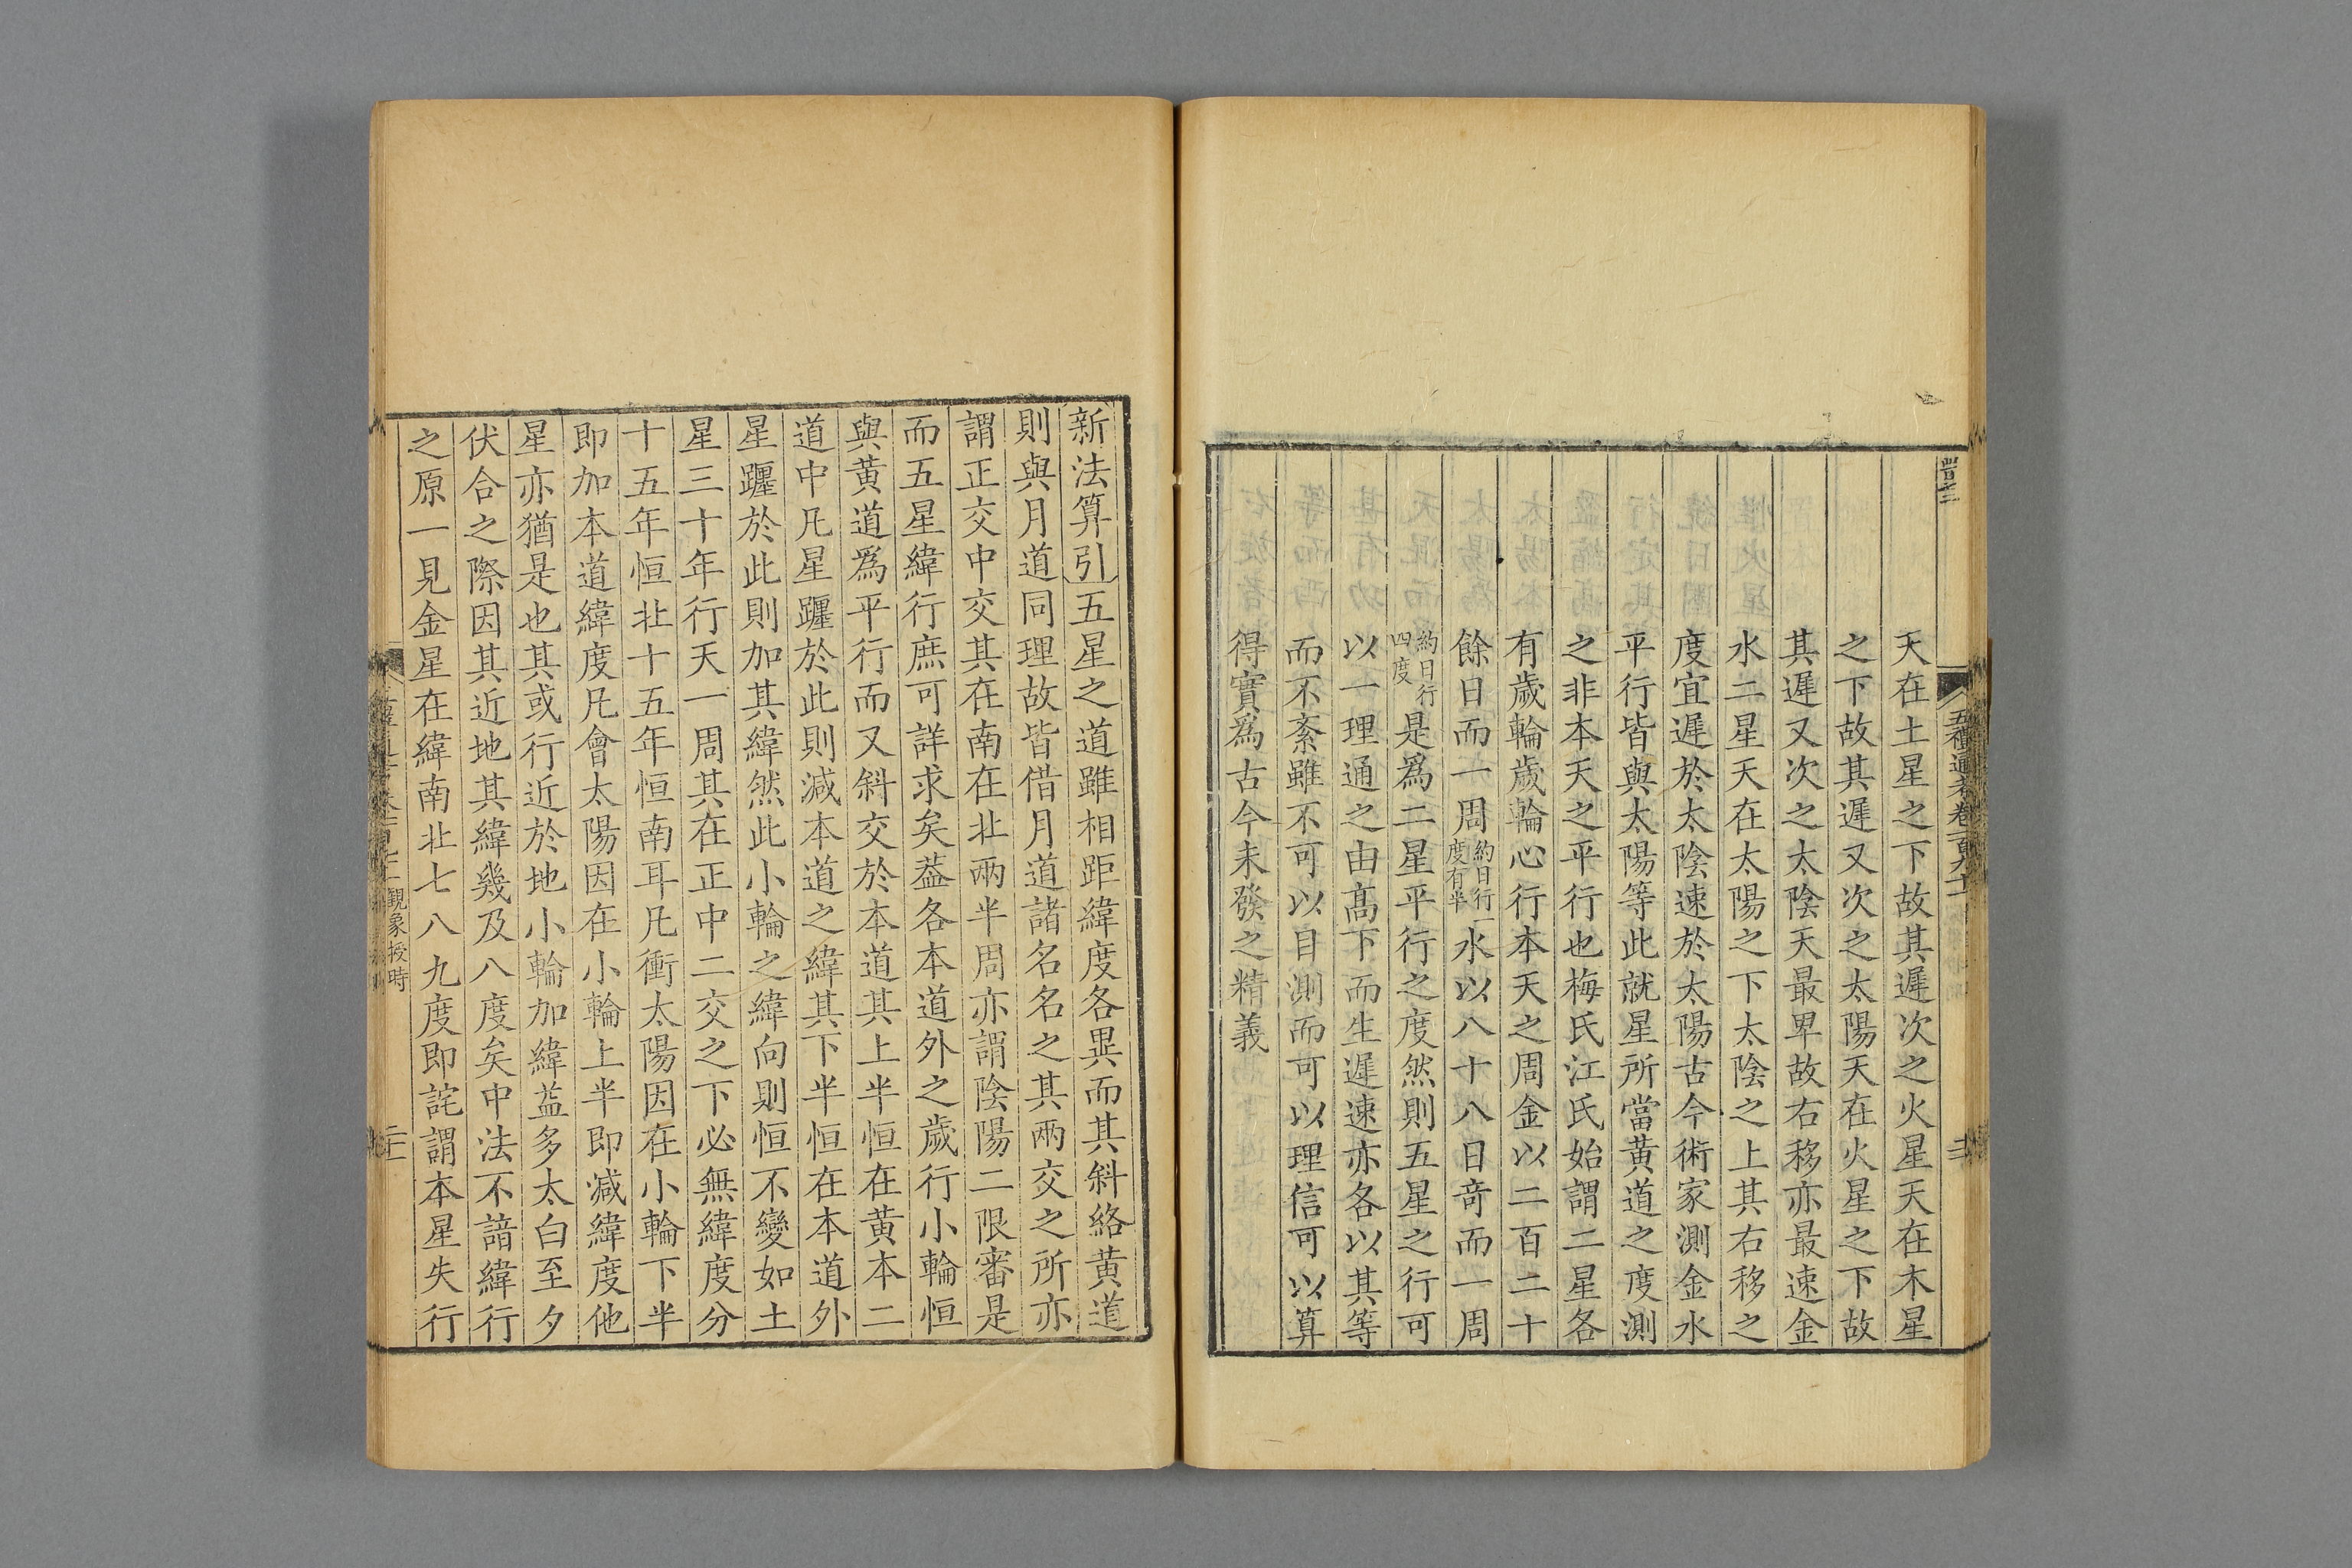 天在土星之下故其遲次之火星天在木星
之下故其遲又次之太陽天在火星之下故
其遲又次之太陰天最卑故右移亦最速金
水二星天在太陽之下太陰之上其右移之
度宜遲於太陰速於太陽古今術家測金水
平行皆與太陽等此就星所當黄道之度測
之非本天之平行也梅氏江氏始謂二星各
有歲輪歲輪心行本天之周金以二百二十
餘日而一周約日行一度有半水以八十八日竒而一周
約日行四度是爲二星平行之度然則五星之行可
以一理通之由髙下而生遲速亦各以其等
而不紊雖不可以目測而可以理信可以算
得實爲古今未發之精義
新法算引五星之道雖相距緯度各異而其斜絡黄道
則與月道同理故皆借月道諸名名之其兩交之所亦
謂正交中交其在南在北兩半周亦謂陰陽二限審是
而五星緯行庶可詳求矣葢各本道外之歲行小輪恒
與黄道爲平行而又斜交於本道其上半恒在黄本二
道中凡星躔於此則減本道之緯其下半恒在本道外
星躔於此則加其緯然此小輪之緯向則恒不變如土
星三十年行天一周其在正中二交之下必無緯度分
十五年恒北十五年恒南耳凡衝太陽因在小輪下半
即加本道緯度凡會太陽因在小輪上半即減緯度他
星亦猶是也其或行近於地小輪加緯葢多太白至夕
伏合之際因其近地其緯幾及八度矣中法不諳緯行
之原一見金星在緯南北七八九度即詫謂本星失行
觀象授時